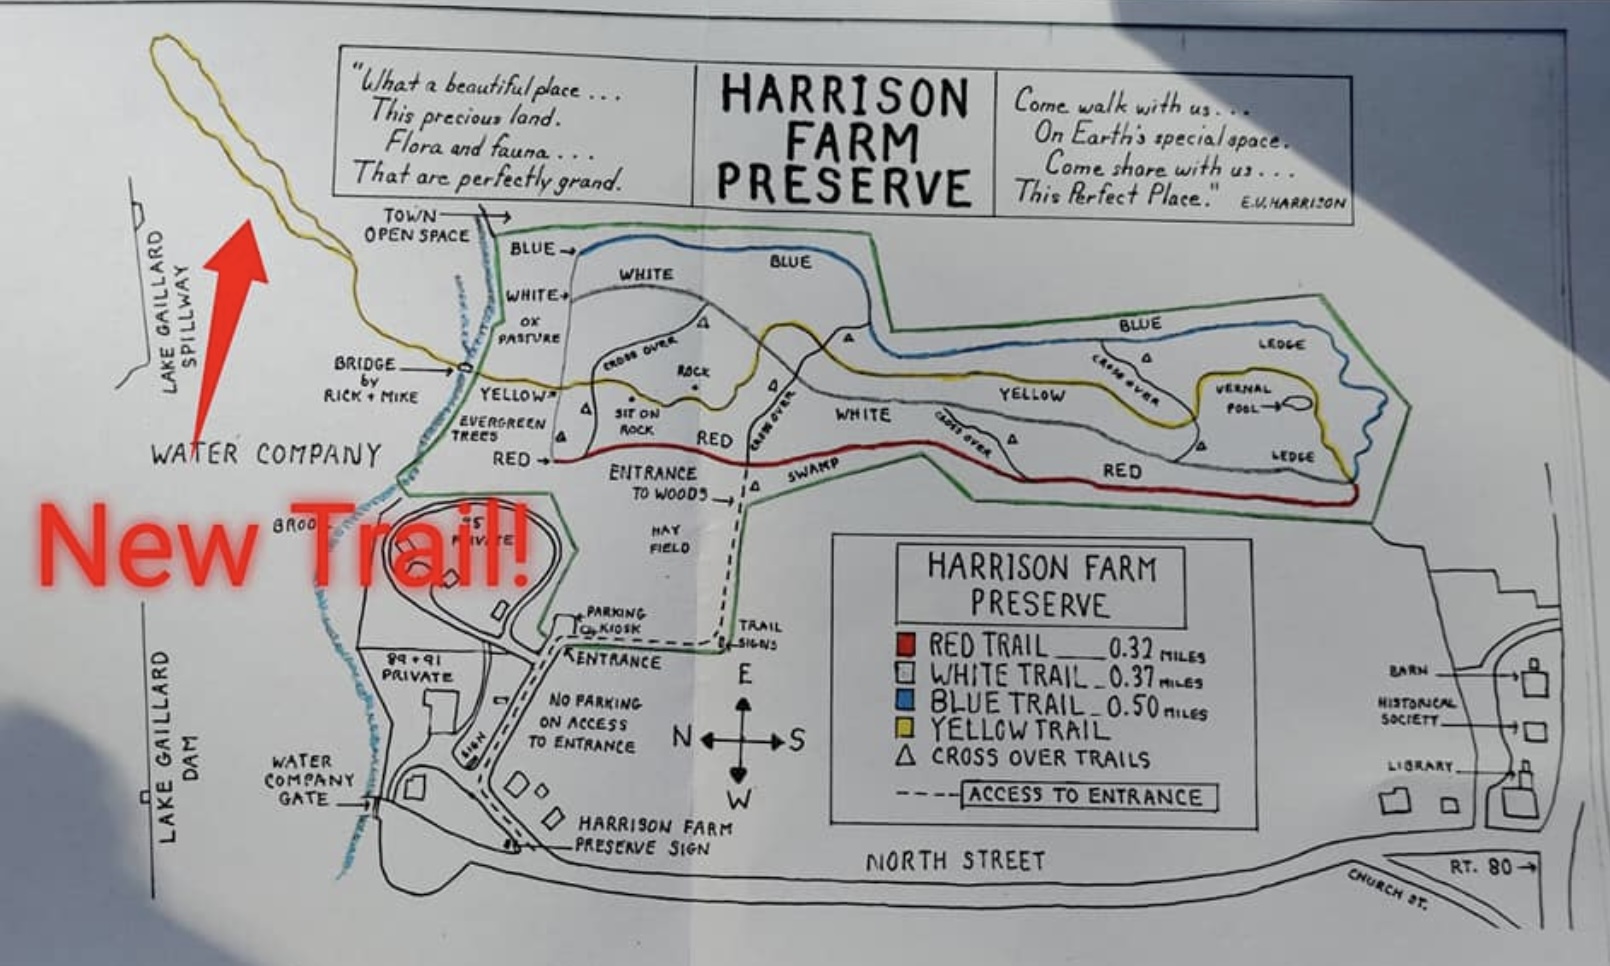 "What a beautiful place ...
This precious land.
Flora and fauna ...
That are perfectly grand.
HARRISON
FARM
PRESERVE
Come walk with us ...
On Earth's special space.
Come share with us ...
This Perfect Place."
E.V. HARRISON
TOWN
OPEN SPACE
BLUE
BLUE
WHITE
WHITE
OX
PASTURE
CROSS OVER
BLUE
LEDGE
LAKE GAILLARD
SPILLWAY
BRIDGE
by
RICK + MIKE
ROCK
YELLOW
SIT ON
ROCK
CROSS OVER
CROSS OVER
YELLOW
VERNAL
POOL
WHITE
CROSS OVER
EVERGREEN
TREES
RED
RED
RED
LEDGE
SWAMP
WATER COMPANY
ENTRANCE
TO WOODS
New Trail!
BROO
95
PRIVATE
HAY
FIELD
PARKING
KIOSK
TRAIL
SIGNS
ENTRANCE
89 + 91
PRIVATE
NO PARKING
ON ACCESS
TO ENTRANCE
SIGN
E
N
S
W
HARRISON FARM
PRESERVE
RED TRAIL 0.32 MILES
WHITE TRAIL 0.37 MILES
BLUE TRAIL 0.50 MILES
YELLOW TRAIL
CROSS OVER TRAILS
ACCESS TO ENTRANCE
BARN
HISTORICAL
SOCIETY
LIBRARY
LAKE GAILLARD
DAM
WATER
COMPANY
GATE
HARRISON FARM
PRESERVE SIGN
NORTH STREET
CHURCH ST.
RT. 80